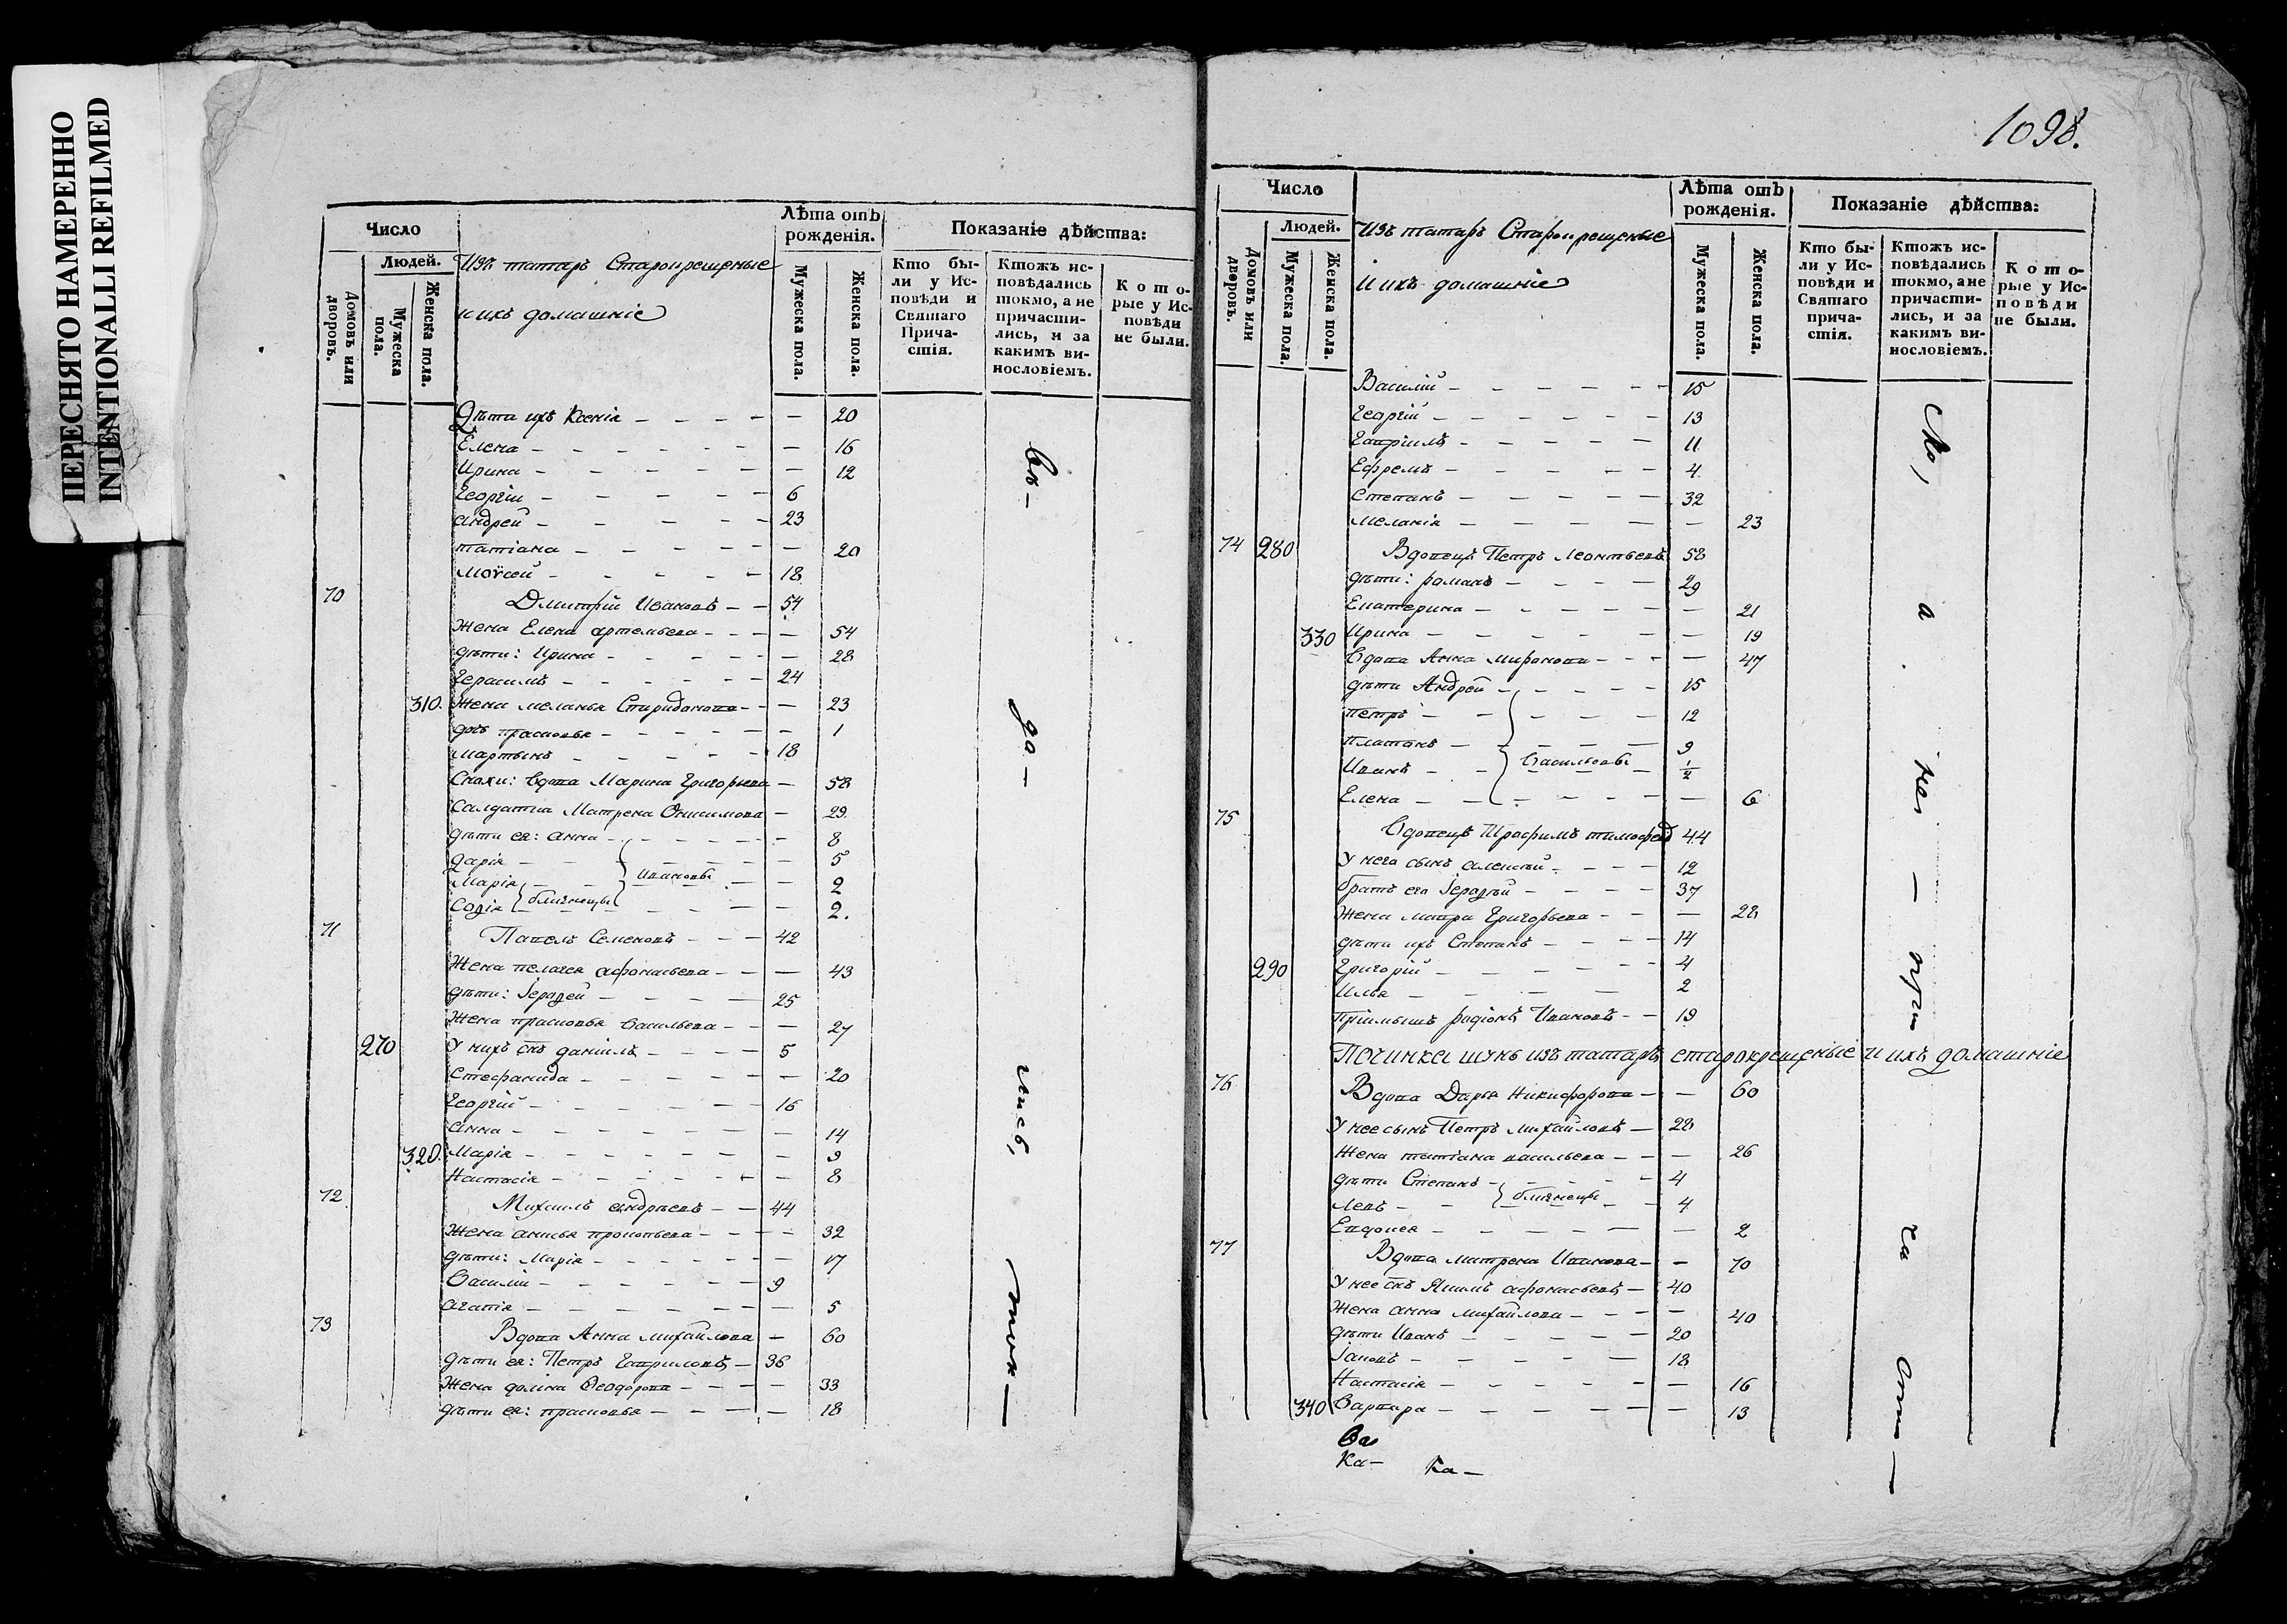 ПЕРЕСНЯТО НАМЕРЕННО
INTENTIONALLI REFILMED
Число
Лѣта отъ рожденія.
Показаніе дѣйства:
Домовъ или дворовъ.
Людей.
Мужеска пола.
Женска пола.
Изъ татаръ Старокрещеные
и ихъ домашніе
Мужеска пола.
Женска пола.
Кто были у Исповѣди и Святаго Причастія.
Ктожъ исповѣдались токмо, а не причастились, и за какимъ винословіемъ.
Которые у Исповѣди не были.
Дѣти ихъ Ксенія — 20
Елена — 16
Ирина — 12
Георгій 6
Андрей 23
татіана — 20
Моѵсей 18
70 Дмитрій Ивановъ 54
Жена Елена артемьева — 54
дѣти: Ирина — 28
Герасимъ 24
310. Жена меланья Спиридонова — 23
дочь прасковья — 1
мартынъ 18
Снохи: вдова Марина Григорьева — 58
Салдатка Матрена Онисимова — 29
дѣти ея: анна — 8
дарія — 5
Ивановы
Марія — 2
близнецы
Софія — 2.
71 Павелъ Семеновъ 42
Жена пелагея афонасьева — 43
дѣти: Іерофей 25
Жена прасковья васильева — 27
270 У нихъ снъ даніилъ 5
Стефанида — 20
Георгій 16
анна — 14
320. Марія — 9
Настасія — 8
72 Михаилъ андрѣевъ 44
Жена анисья прокопьева — 32
дѣти: Марія — 17
Василій 9
агапія — 5
73 Вдова Анна михайлова — 60
дѣти ея: Петръ Гавриловъ 36
Жена Ѳеодорова — 33
дѣти ея: прасковья — 18
въ—
да—
лись,
ток—
1098.
Число
Лѣта отъ рожденія.
Показаніе дѣйства:
Домовъ или дворовъ.
Людей.
Мужеска пола.
Женска пола.
Изъ татаръ Старокрещеные
и ихъ домашніе
Мужеска пола.
Женска пола.
Кто были у Исповѣди и Святаго причастія.
Ктожъ исповѣдались токмо, а не причастились, и за какимъ винословіемъ.
Которые у Исповѣди не были.
Василій 15
Георгій 13
Гавріилъ 11
Ефремъ 4
Степанъ 32
меланія — 23
74 280 Вдовецъ Петръ Леонтьевъ 58
дѣти: романъ 29
Екатерина — 21
330 Ирина — 19
Вдова Анна миронова — 47
дѣти Андрей 15
петръ 12
платонъ 9
Васильевы
Иванъ 1/2
Елена — 6
75 Вдовецъ Трофимъ тимофѣе 44
У него сынъ алексѣй 12
братъ его Іерофѣй 37
Жена мавра Григорьева — 28
дѣти ихъ Степанъ 14
290 Григорій 4
Илья 2
пріимышъ радіонъ Ивановъ 19
Починка шунь изъ татаръ старокрещеніе и ихъ домашніе
76 Вдова Дарья Никифорова — 60
У нее сынъ Петръ михайловъ 28
Жена татіана васильева — 26
дѣти Степанъ 4
близнецы
левъ 4
Евдокея — 2
77 Вдова матрена Иванова — 70
У нее снъ Якимъ афонасьевъ 40
Жена анна михайлова — 40
дѣти Иванъ 20
Іаковъ 18
Настасія — 16
340 Варвара — 13
мо,
а
не—
при
ча
сти—
Ва
Ка—
Ка—